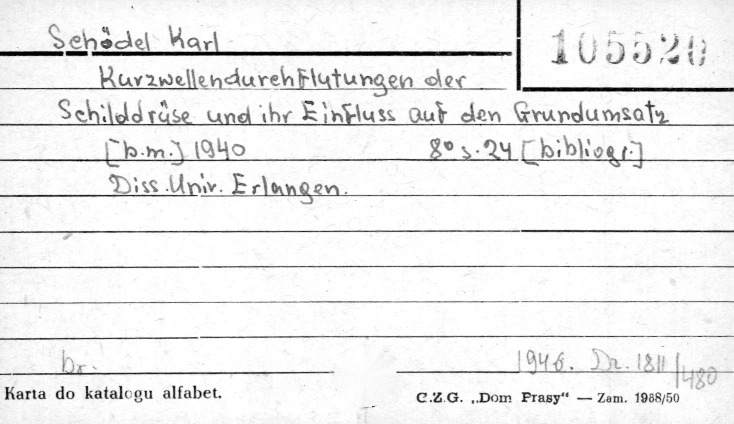 Schödel Karl
105520
Kurzwellendurchflutungen der
Schilddrüse und ihr Einfluss auf den Grundumsatz
[b.m.] 1940 8° s. 24 [bibliogr.]
Diss. Univ. Erlangen.
br. 1946. Dr. 1811/480
Karta do katalogu alfabet. C.Z.G. „Dom Prasy“ — Zam. 1968/50